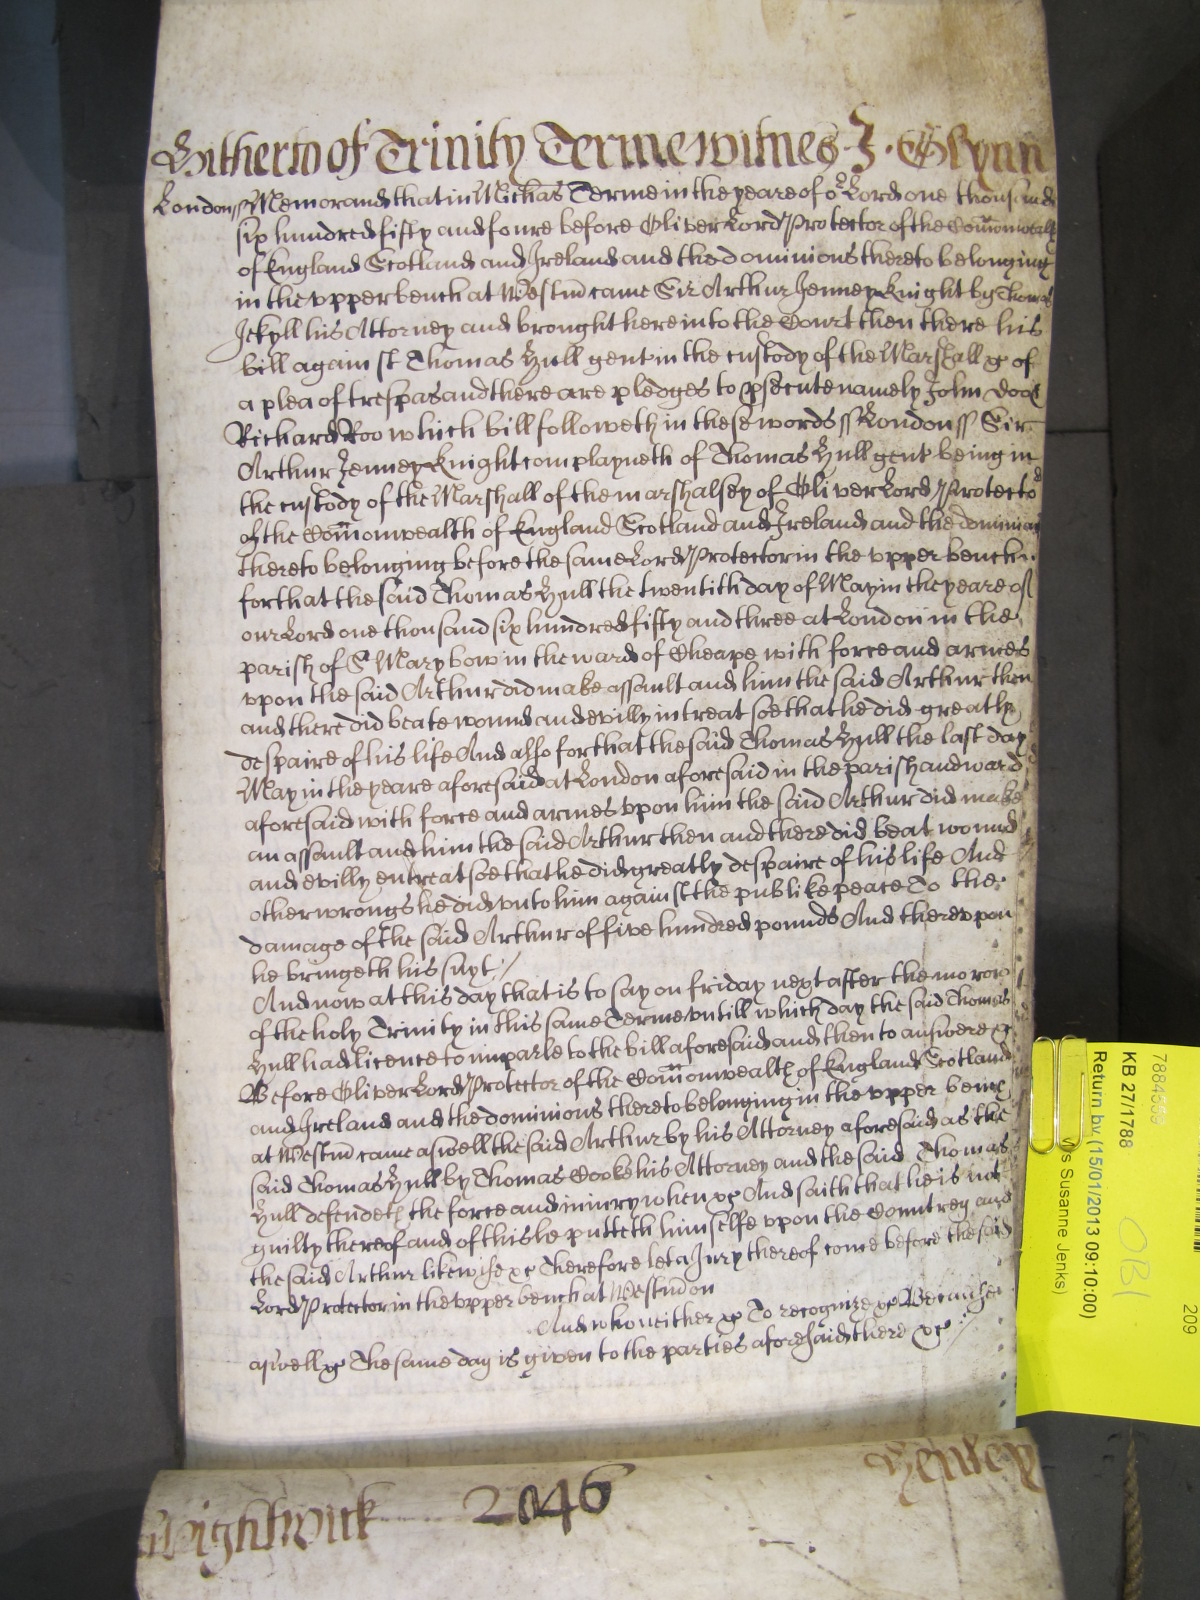 Hitherto of Trinity Terme witnes J. Glynn
London ss Memorand that in Michas Terme in the yeare of or Lord one thousand
six hundred fifty and foure before Oliver Lord Protector of the Comonwealth
of England Scotland and Ireland and the dominions thereto belonging
in the upper bench at Westm came Sir Arthur Jenney Knight by Thomas
Jekyll his Attorney and brought here into the Court then there his
bill against Thomas Hull gent in the custody of the Marshall &c of
a plea of trespas and there are pledges to psecute namely John Doo &
Richard Roo which bill followeth in these words ss London ss Sir
Arthur Jenney Knight complayneth of Thomas Hull gent being in
the custody of the Marshall of the marshalsey of Oliver Lord Protector
of the Comonwealth of England Scotland and Ireland and the dominions
thereto belonging before the same Lord Protector in the upper bench
for that the said Thomas Hull the twentith day of May in the yeare of
our Lord one thousand six hundred fifty and three at London in the
parish of St Mary bow in the ward of Cheape with force and armes
upon the said Arthur did make assault and him the said Arthur then
and there did beate wound and evilly intreat soe that he did greatly
despaire of his life And also for that the said Thomas Hull the last day
May in the yeare aforesaid at London aforesaid in the parish and ward
aforesaid with force and armes upon him the said Arthur did make
an assault and him the said Arthur then and there did beat wound
and evilly entreat soe that he did greatly despaire of his life And
other wrongs he did unto him against the publike peace To the
damage of the said Arthur of five hundred pounds And thereupon
he bringeth his suyt /
And now at this day that is to say on friday next after the morow
of the holy Trinity in this same Terme untill which day the said Thomas
Hull had licence to imparle to the bill aforesaid and then to answere &c
Before Oliver Lord Protector of the Comonwealth of England Scotland
and Ireland and the dominions thereto belonging in the upper bench
at Westm came aswell the said Arthur by his Attorney aforesaid as the
said Thomas Hull by Thomas Cooke his Attorney and the said Thomas
Hull defendeth the force and iniury when &c And saith that he is not
guilty thereof and of this he putteth himselfe upon the Countrey and
the said Arthur likewise &c Therefore let a Jury thereof come before the said
Lord Protector in the upper bench at Westm on
And who neither &c To recognize &c Because
aswell &c The same day is given to the parties aforesaid there &c /
Wightwick 2046 Henley
7884559
KB 27/1788
Return by (15/01/2013 09:10:00)
Susanne Jenks)
209